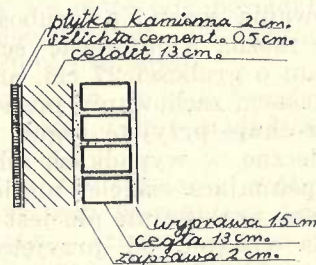 płytka kamionna 2 cm.
szlichta cement. 0.5 cm.
celolit 13 cm.
wyprawa 1.5 cm
cegła 13 cm.
zaprawa 2 cm.